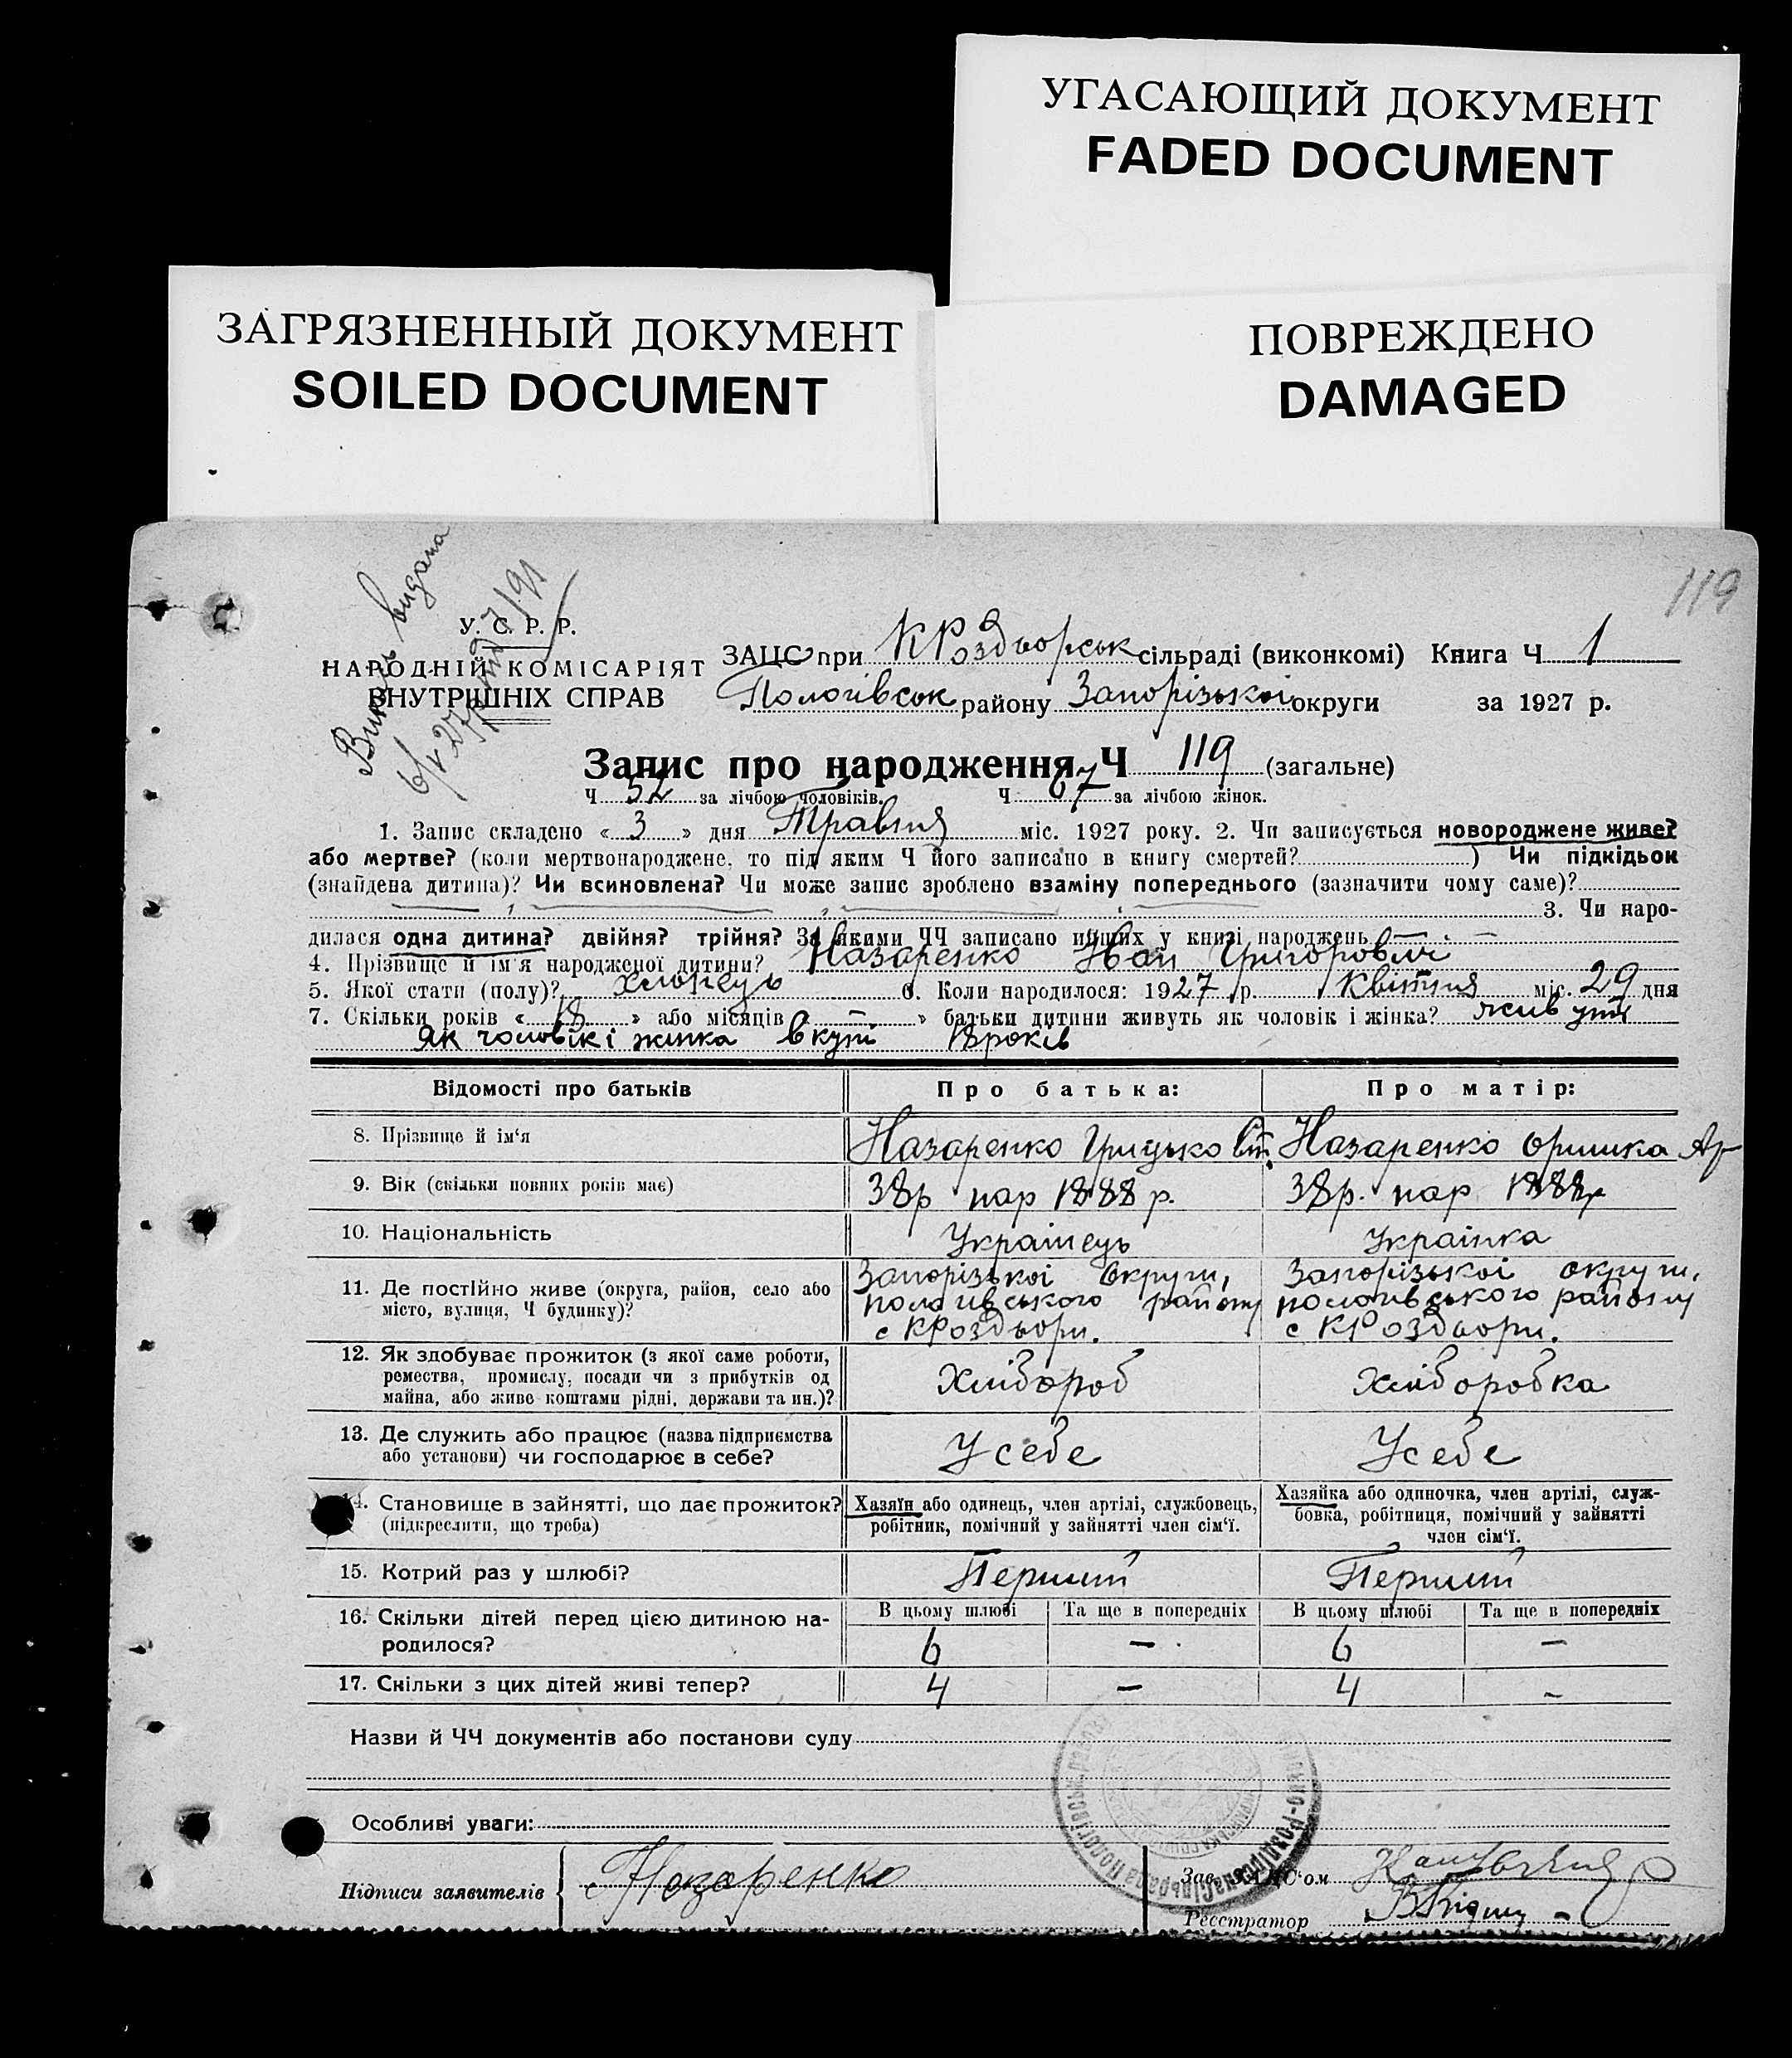 УГАСАЮЩИЙ ДОКУМЕНТ
FADED DOCUMENT
ЗАГРЯЗНЕННЫЙ ДОКУМЕНТ
SOILED DOCUMENT
ПОВРЕЖДЕНО
DAMAGED
119
видана
У. С. Р. Р.
НАРОДНІЙ КОМІСАРІЯТ
ВНУТРІШНІХ СПРАВ
ЗАЦС при КРоздьорськ сільраді (виконкомі) Книга Ч 1
Пологівськ району Запорізької округи за 1927 р.
Запис про народження Ч 119 (загальне)
Ч 52 за лічбою чоловіків. Ч 67 за лічбою жінок.
1. Запис складено « 3 » дня Травня міс. 1927 року. 2. Чи записується новороджене живе?
або мертве? (коли мертвонароджене, то під яким Ч його записано в книгу смертей? ) Чи підкідьок
(знайдена дитина)? Чи всиновлена? Чи може запис зроблено взаміну попереднього (зазначити чому саме)?
3. Чи наро-
дилася одна дитина? двійня? трійня? За якими ЧЧ записано инших у книзі народжень —
4. Прізвище й ім'я народженої дитини? Назаренко Іван Григоровіч
5. Якої стати (полу)? хлопець 6. Коли народилося: 1927 р. Квітня міс. 29 дня
7. Скільки років « 18 » або місяців « — » батьки дитини живуть як чоловік і жінка? живуть
як чоловік і жінка вкупі 18 років
Відомості про батьків Про батька: Про матір:
8. Прізвище й ім'я Назаренко Грицько Назаренко Оришка Ар
9. Вік (скільки повних років має) 38р нар 1888 р. 38р. нар 1888р
10. Національність Українець Українка
11. Де постійно живе (округа, район, село або
місто, вулиця, Ч будинку)?
Запорізької округи, Запорізької округи,
пологівського району пологівського району
с КРоздьори. с КРоздьори.
12. Як здобуває прожиток (з якої саме роботи,
ремества, промислу, посади чи з прибутків од
майна, або живе коштами рідні, держави та ин.)?
Хлібороб Хліборобка
13. Де служить або працює (назва підприємства
або установи) чи господарює в себе?
У себе У себе
14. Становище в зайнятті, що дає прожиток?
(підкреслити, що треба)
Хазяїн або одинець, член артілі, службовець,
робітник, помічний у зайнятті член сім'ї.
Хазяйка або одиночка, член артілі, служ-
бовка, робітниця, помічний у зайнятті
член сім'ї.
15. Котрий раз у шлюбі? Перший Перший
16. Скільки дітей перед цією дитиною на-
родилося?
В цьому шлюбі Та ще в попередніх В цьому шлюбі Та ще в попередніх
6 — 6 —
17. Скільки з цих дітей живі тепер? 4 — 4 —
Назви й ЧЧ документів або постанови суду
Особливі уваги:
Підписи заявителів Назаренко
Зав. ЗАЦС'ом
Реєстратор